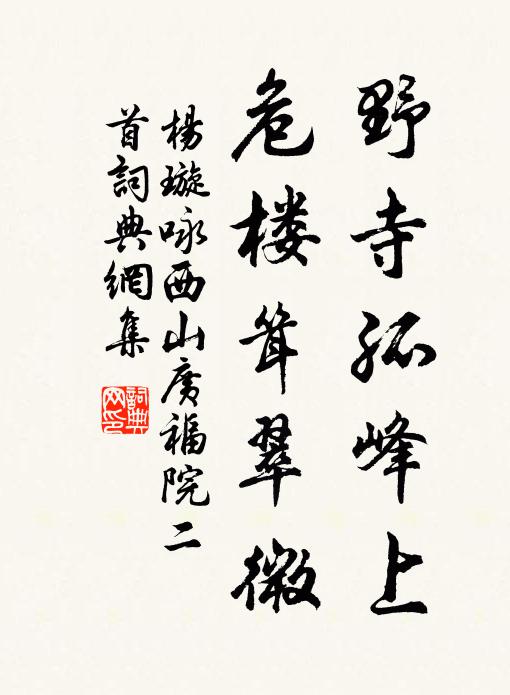 野寺孤峰上
危楼耸翠微
楊璇咏西山廣福院二
首詞典網集
詞典
网印